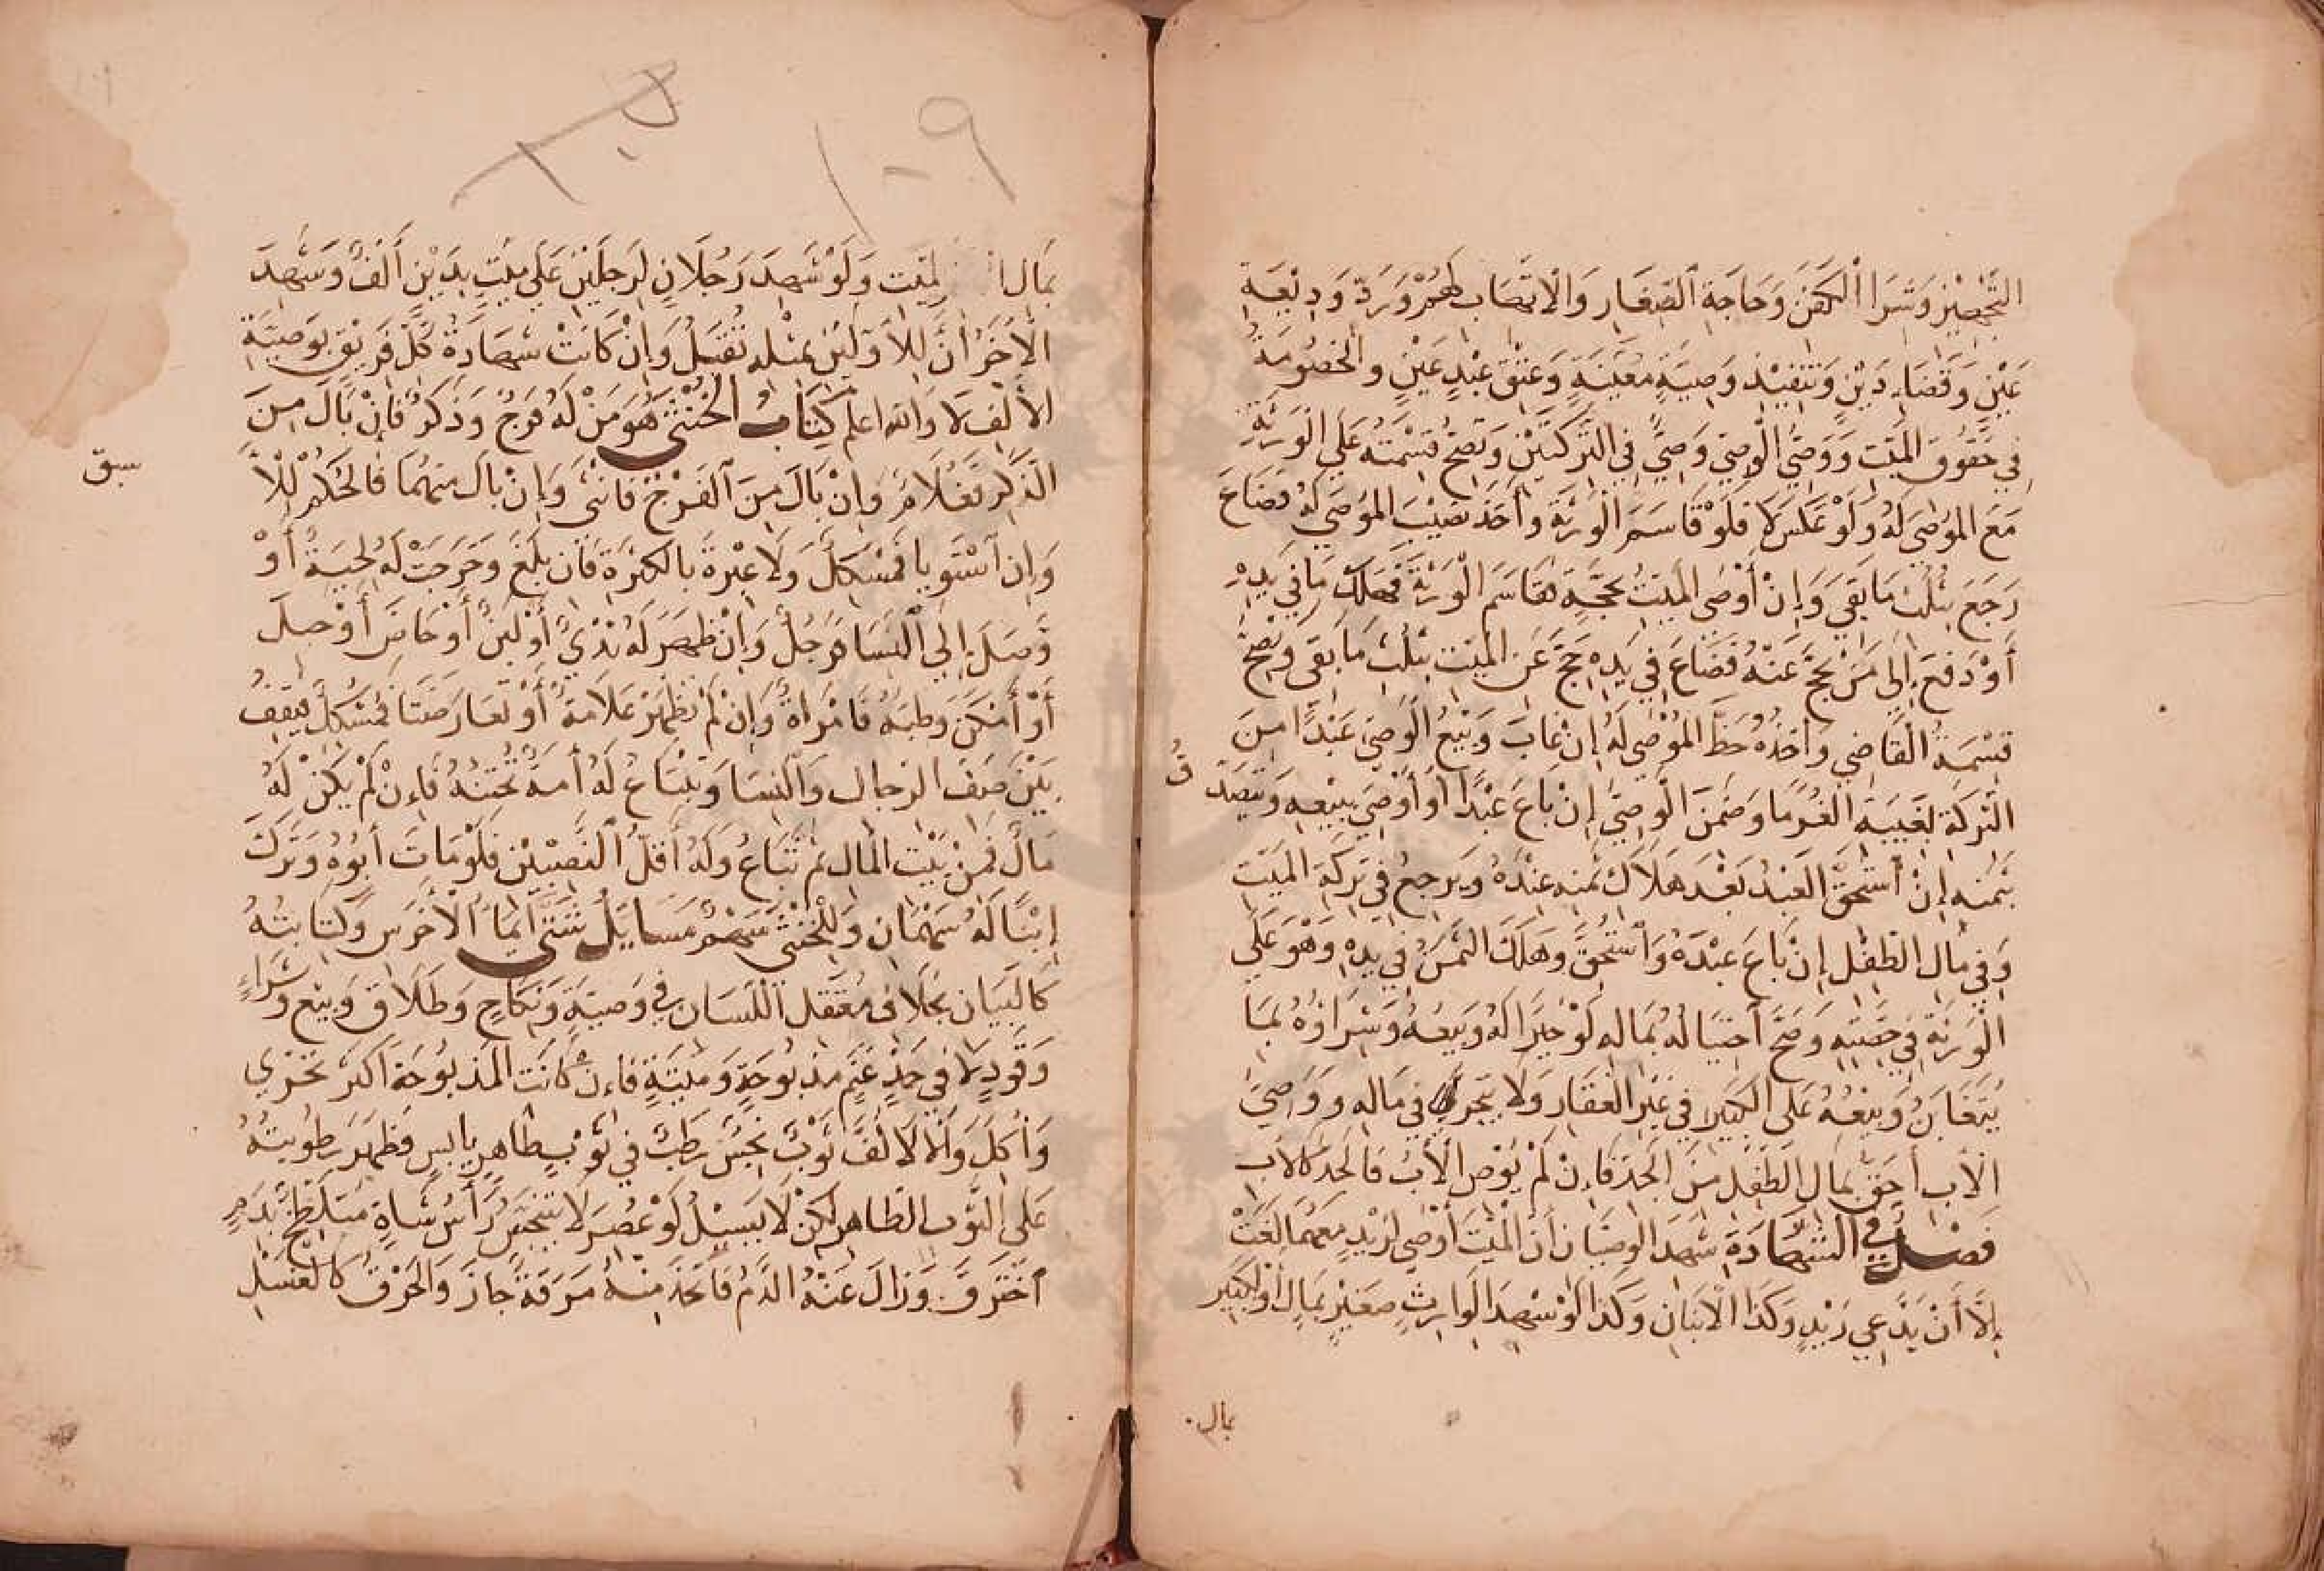 التَّجْهِيْزِ وَشِرَا الْكَفَنِ وَحَاجَةِ الصِّغَارِ وَالْاتِّهَابِ لَهُمْ وَرَدِّ وَدِيْعَةِ
عَيْنٍ وَقَضَاءِ دَيْنٍ وَتَنْفِيْذِ وَصِيَةٍ مُعَيَّنَةٍ وَعِتْقِ عَبْدٍ عَيْنٍ وَالْخُصُومَةِ
فِي حُقُوقِ الْمَيِّتِ وَوَصِيُّ الْوَصِيِّ وَصِيٌّ فِي التَّرِكَتَيْنِ وَتَصِحُّ قِسْمَتُهُ عَلَي الْوَرَثَةِ
مَعَ الْمُوْصَى لَهُ وَلَوْ عَكَسَ لَا فَلَوْ قَاسَمَ الْوَرَثَةَ وَأَخَذَ نَصِيْبَ الْمُوْصَى لَهُ فَضَاعَ
رَجَعَ بِثُلُثِ مَا بَقِيَ وَإِنْ أَوْصَى الْمَيِّتُ بِحَجَّةٍ فَقَاسَمَ الْوَرَثَةَ فَهَلَكَ مَا فِي يَدِهِ
أَوْ دَفَعَ إِلَى مَنْ يَحُجُّ عَنْهُ فَضَاعَ فِي يَدِهِ حَجَّ عَنِ الْمَيِّتِ بِثُلُثِ مَا بَقَى وَتَصِحُّ
قِسْمَةُ الْقَاضِي وَأَخْذُهُ حَظَّ الْمُوْصَى لَهُ إِنْ غَابَ وَبَيْعُ الْوَصِيِّ عَبْدًا مِنَ
التَّرِكَةِ لِغَيْبَةِ الْغُرَمَا وَضَمِنَ الْوَصِيُّ إِنْ بَاعَ عَبْدًا أَوْ أَوْصَى بِبَيْعِهِ وَيَتَصَدَّقُ
بِثَمَنِهِ إِنْ اسْتُحِقَّ الْعَبْدُ بَعْدَ هَلَاكِ ثَمَنِهِ عِنْدَهُ وَيَرْجِعُ فِي تَرِكَةِ الْمَيِّتِ
وَفِي مَالِ الطِّفْلِ إِنْ بَاعَ عَبْدَهُ وَاسْتُحِقَّ وَهَلَكَ الثَّمَنُ فِي يَدِهِ وَهْوَ عَلَي
الْوَرَثَةِ فِي حِصَّتِهِ وَصَحَّ احْتِيَالُهُ بِمَالِهِ لَوْ خَيْرًا لَهُ وَبَيْعُهُ وَشِرَاؤُهُ بِمَا
يُتَغَابَنُ وَبَيْعُهُ عَلَى الْكَبِيْرِ فِي غَيْرِ الْعَقَارِ وَلَا يَتَّجِرُ فِي مَالِهِ وَوَصِيُّ
الْأَبِ أَحَقُّ بِمَالِ الطِّفْلِ مِنَ الْجَدِّ فَاءِنْ لَمْ يُوْصِ الْأَبُ فَالْجَدُّ كَالْأَبِ
فَصْلٌ فِي الشَّهَادَةِ شَهِدَ الْوَصِيَّانِ أَنَّ الْمَيِّتَ أَوْصَى لِزَيْدٍ مَعَهُمَا لَغَتْ
إِلَّا أَنْ يَدَّعِي زَيْدٍ وَكَذَا الْابْنَانِ وَكَذَا لَوْ شَهِدَ الْوَارِثِ صَغِيْرٍ بِمَالٍ أَوْ لِكَبِيْرٍ
بمال
بِمَالِ لِمَيِّتِ وَلَوْ شَهِدَ رَجُلَانِ لِرَجُلَيْنِ عَلَي مَيِّتٍ بِدَيْنِ أَلْفٍ وَشَهِدَ
الْأخَرَ أَنَّ لِلْأَوَّلَيْنِ بِمِثْلِهِ تُقْبَلُ وَإِنْ كَانَتْ شَهَادَةُ كُلِّ فَرِيْقٍ بِوَصِيَّةِ
الْأَلْفِ لَا وَالله اعلم كِتَابُ الْخُنْثَى هُوَ مَنْ لَهُ فَرْجٌ وَذَكَرٌ فَإِنْ بَالَ مِنَ
الذَّكَرِ فَغُلَامٌ وَإِنْ بَالَ مِنَ الْفَرْجِ فَأُنْثَى وَإِنْ بَالَ مِنْهُمَا فَالْحُكْمُ لِلْأ
سبق
وَإِنِ اسْتَوَيَا فَمُشْكِلٌ وَلَا عِبْرَةَ بِالْكَثْرَةِ فَإِن بَلَغَ وَخَرَجَتْ لَهُ لِحْيَةٌ أَوْ
وَصَلَ إِلَي النِّسَا فَرَجُلٌ وَإِنْ ظَهَرَ لَهُ ثَدْيٌ أَوْ لَبَنٌ أَوْ حَاضَ أَوْ حَبِلَ
أَوْ أَمْكَنَ وَطْئَهُ فَامْرَأَةٌ وَإِنْ لَمْ تَظْهَرْ عَلَامَةٌ أَوْ تَعَارَضَتَا فَمُشْكِلٌ فَيَقِفُ
بَيْنَ صَفِّ الرِّجَالِ وَالنِّسَا وَتُبْتَاعُ لَهُ أَمَةٌ تُخْتِنُهُ فَاءِنْ لَمْ يَكُنْ لَهُ
مَالٌ فَمِنْ بَيْتِ الْمَالِ ثُمَّ تُبَاعُ وَلَهُ أَقَلُّ النَّصِيْبَيْنِ فَلَوْ مَاتَ أَبُوهُ وَتَرَكَ
إِبْنًا لَهُ سَهْمَانِ وَلِلْخُنْثَى سَهْمٌ مَسَايِلُ شَتَّى ايْمَا الْأَخْرَسِ وَكِتَابَتُهُ
كَالْبَيَانِ بِخِلَافِ مُعْتَقَلِ اللِّسَانِ فِي وَصِيَّةٍ وَنِكَاحٍ وَطَلَاقٍ وَبَيْعٍ وَشِرَاءٍ
وَقَوَدٍ لَا فِي حَدٍّ غَنَمٌ مَذْبُوحَةٌ وَمَيْتَةٍ فَاءِنْ كَانَتِ الْمَذْبُوحَةُ أَكْثَرَ تَحَرَّى
وَأَكَلَ وَالَّا لَا لُفَّ ثَوْبٌ نَجِسٌ رَطِبٌ فِي ثَوْبٍ طَاهِرٍ يَابِسٍ فَظَهَرَ رُطُوبَتُهُ
عَلَى الثَّوْبِ الطَّاهِرِ لَكِنْ لَا يَسِيْلُ لَوْ عُصِرَ لَا يَتَنَجَّسُ رَأْسُ شَاةٍ مُتَلَطِّخٌ بِدَمٍ
احْتَرَقَ وَزَالَ عَنْهُ الدَّمُ فَاتُّخِذَ مِنْهُ مَرَقَةٌ جَازَ وَالْحَرْقُ كَالْغَسْلِ